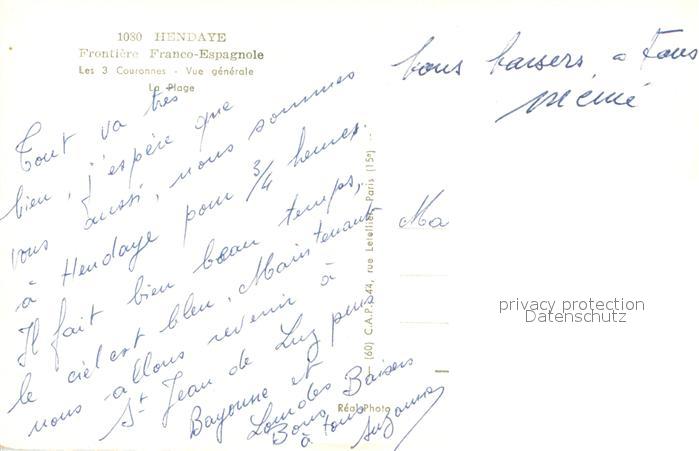 1030 HENDAYE
Frontière Franco-Espagnole
Les 3 Couronnes - Vue générale
La Plage
Tout va très
bien, j'espère que
vous aussi, nous sommes
à Hendaye pour 3/4 heures.
Il fait bien beau temps,
le ciel est bleu. Maintenant
nous allons revenir à
St Jean de Luz puis
Bayonne et
Lourdes
Bons Baisers
à tous
Suzanne
bons baisers à tous
mémé
Ma
(60) C.A.P. 44, rue Letellier Paris (15e)
Réal-Photo
privacy protection
Datenschutz